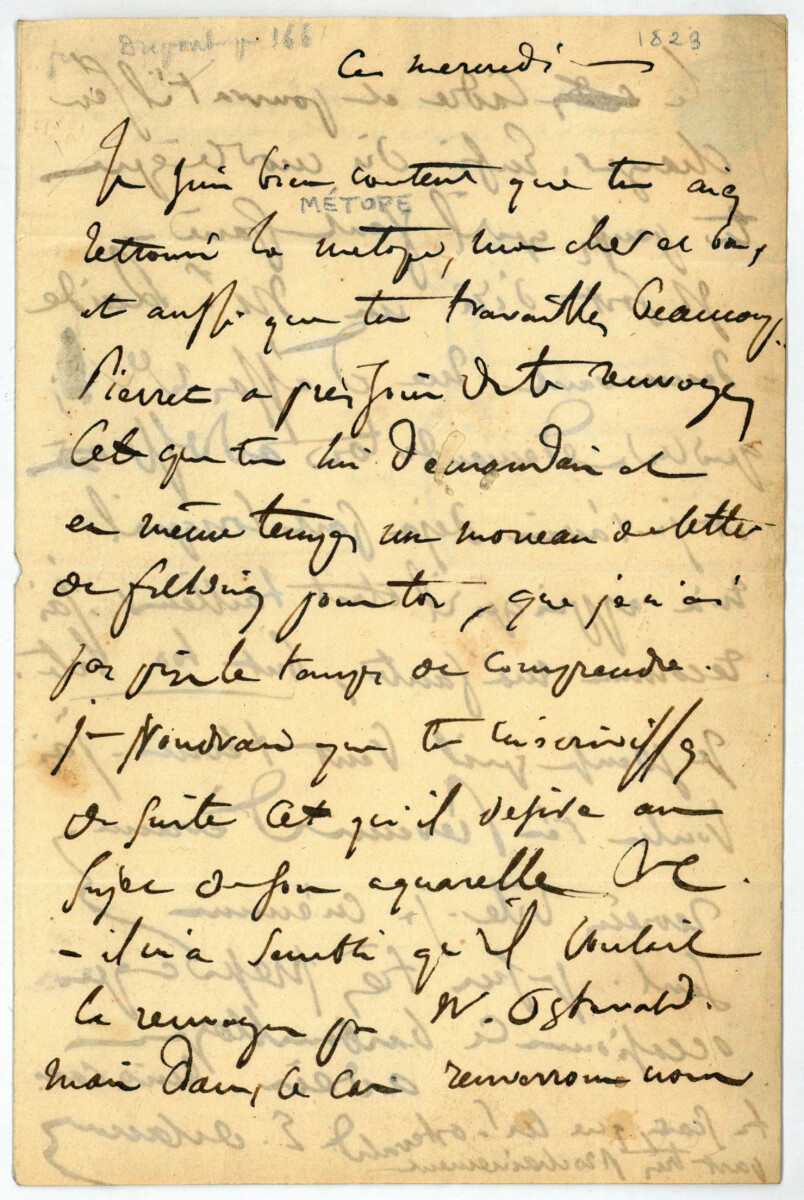 166
1823
Ce mercredi —
Je suis bien content que tu aies
MÉTOPE
retrouvé la metope, mon cher et bon,
et aussi que tu travailles beaucoup.
Pierret a pris soin de te renvoyer
Ce que tu lui demandais et
en même temps un morceau de lettre
de fielding pour toi, que je n'ai
pas pris le temps de comprendre.
je voudrais que tu m'ecrivisses
de suite Ce qu'il desire au
sujet de son aquarelle &c.
– il m'a semblé qu'il voulait
la renvoyer par W. Ostervald.
mais dans ce cas renverrons nous